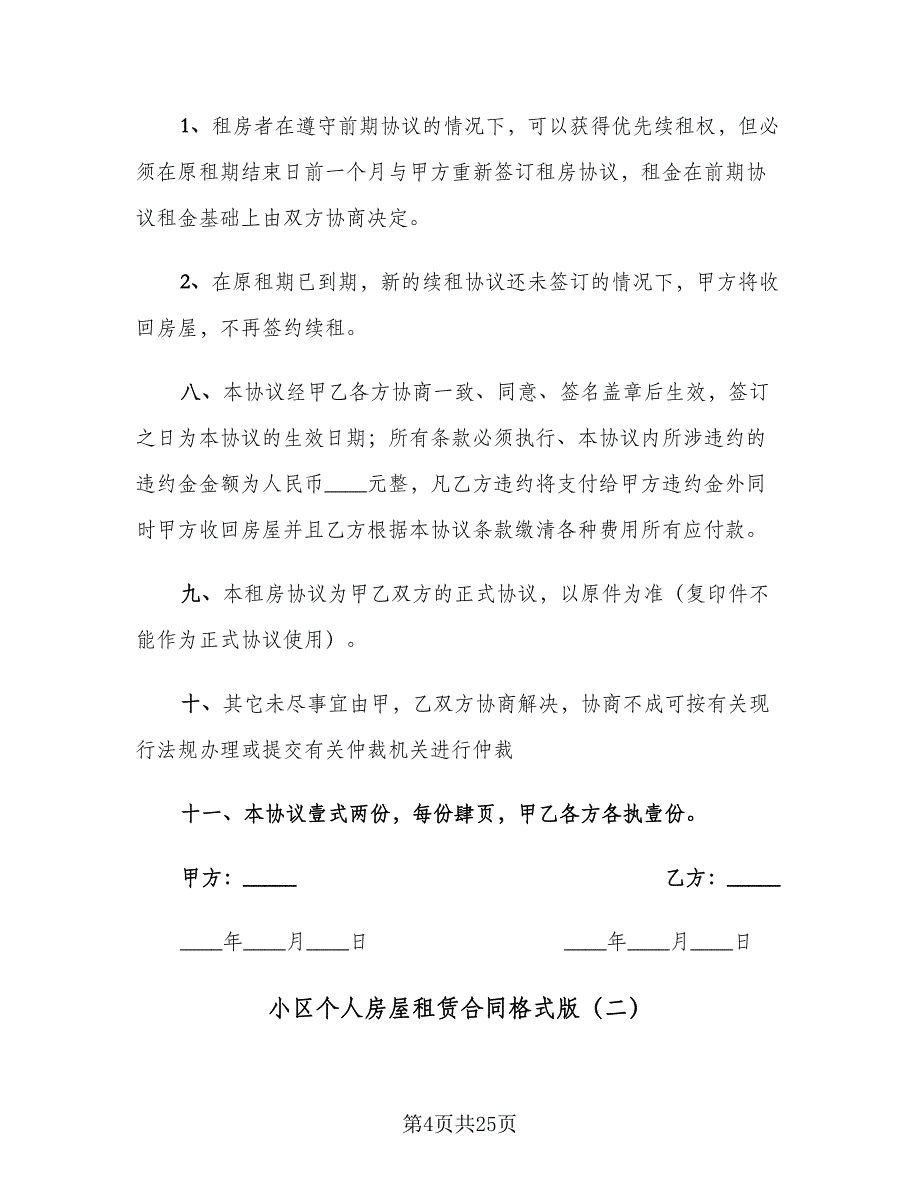 1、租房者在遵守前期协议的情况下，可以获得优先续租权，但必
须在原租期结束日前一个月与甲方重新签订租房协议，租金在前期协
议租金基础上由双方协商决定。
2、在原租期已到期，新的续租协议还未签订的情况下，甲方将收
回房屋，不再签约续租。
八、本协议经甲乙各方协商一致、同意、签名盖章后生效，签订
之日为本协议的生效日期；所有条款必须执行、本协议内所涉违约的
违约金金额为人民币____元整，凡乙方违约将支付给甲方违约金外同
时甲方收回房屋并且乙方根据本协议条款缴清各种费用所有应付款。
九、本租房协议为甲乙双方的正式协议，以原件为准（复印件不
能作为正式协议使用）。
十、其它未尽事宜由甲，乙双方协商解决，协商不成可按有关现
行法规办理或提交有关仲裁机关进行仲裁
十一、本协议壹式两份，每份肆页，甲乙各方各执壹份。
甲方：_____ 乙方：_____
____年____月____日 ____年____月____日
小区个人房屋租赁合同格式版（二）
第4页共25页